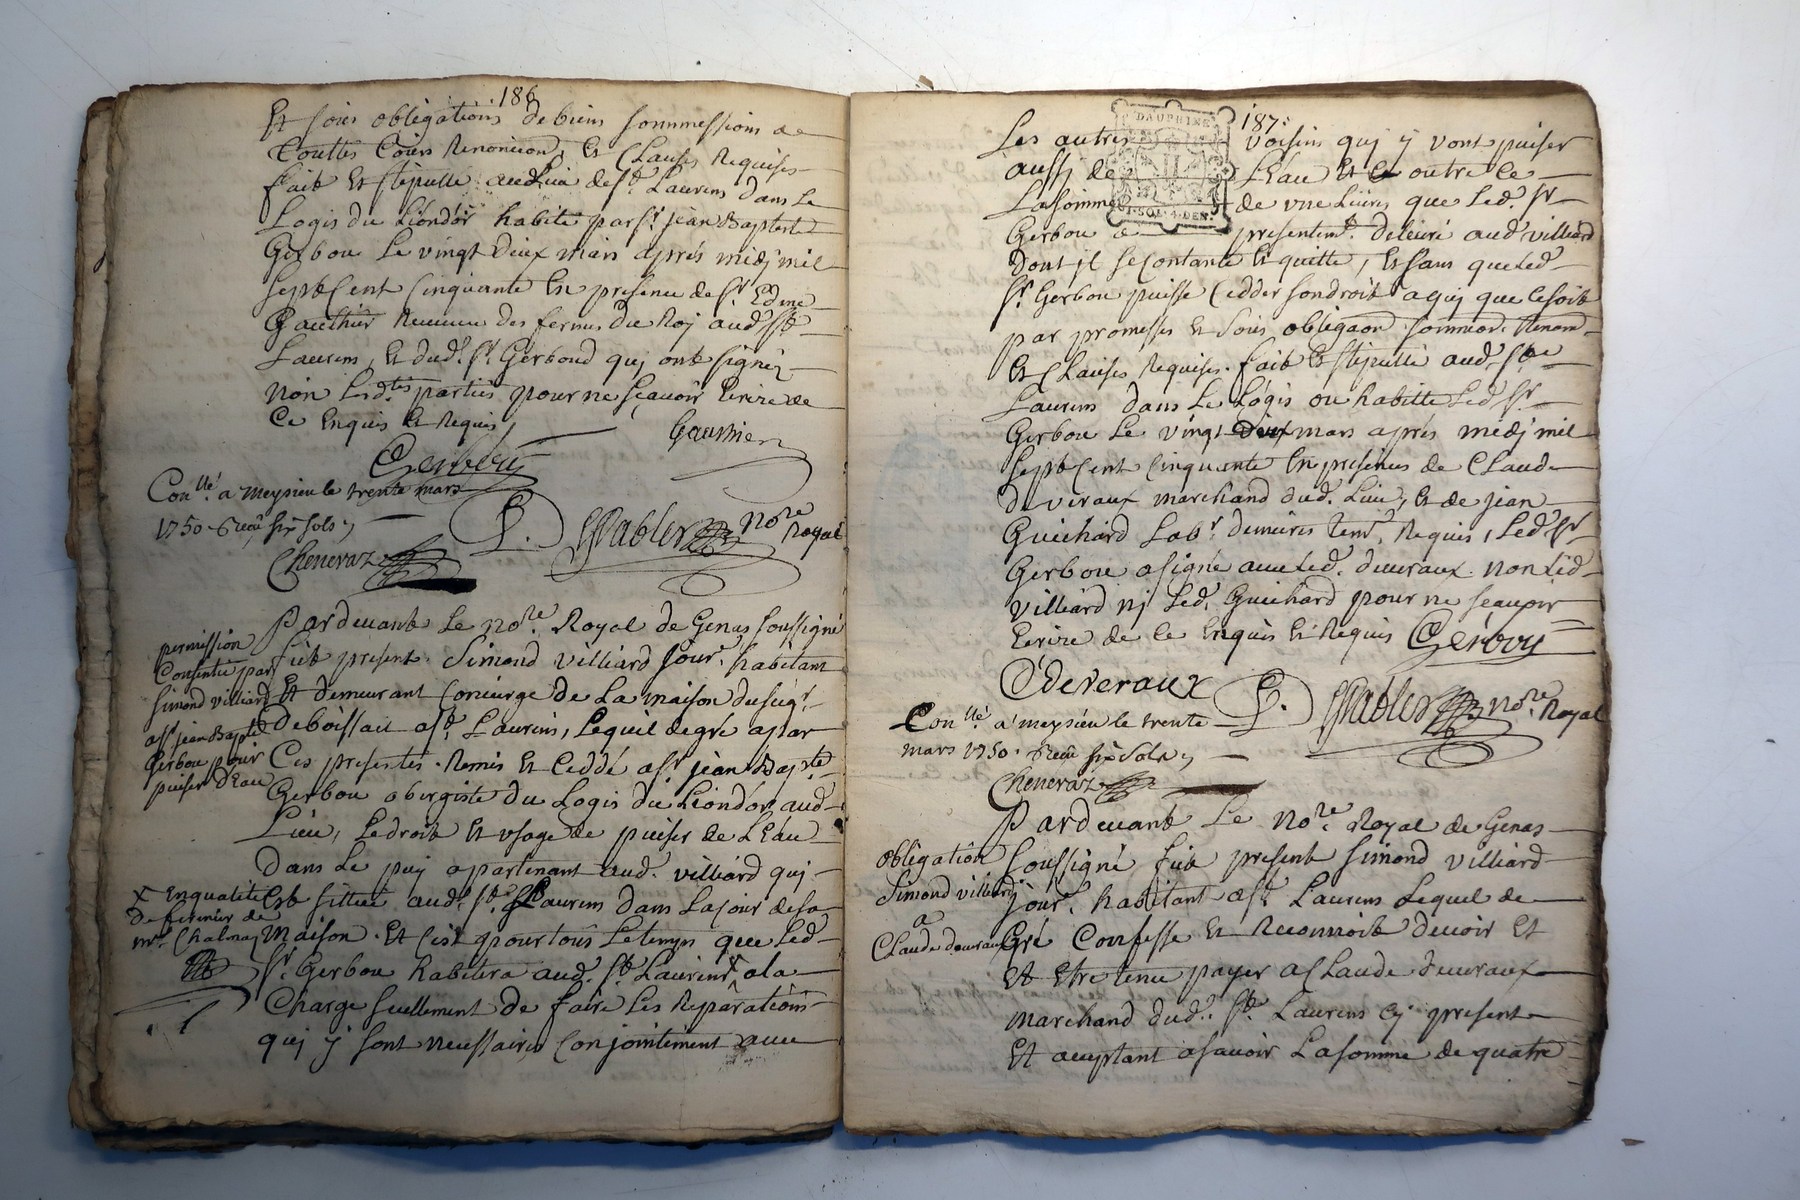 186
Et sous obligations de biens sommessions a
touttes Cours Renonciaon, Et Clauses Requises
fait Et stipullé audlieu de St Laurens dans Le
Logis du Liondór habité par Sr. jean Baptiste
Gerbou Le vingt Deux mars aprés midj mil
sept Cent Cinquante En presence de Sr. Edme
Gauthier Receveur des fermes Du Roj aud St
Laurens, Et dud. Sr. Gerboud quj ont signéz
non Lesdtes parties pour ne sçauoir Ecrire de
Ce Enquis Et Requis,
Gauthier
Gerbou
Conllé. a meyzieu le trente mars
1750. Reçu six sols,
Cheneraz
P. Pablet nore Royal
Pardeuant Le nore. Royal de Genas soussigné
fut present. Simond villiard Jourr. habitant
Et demeurant Concierge de La maison du seigr.
Deboissait a St. Laurens, Lequel de gré a par
Ces presentes. Remis Et Ceddé a Sr. jean Bapte
Gerbou obergiste du Logis du Liondór aud
Lieu, Le droit Et vsage de puiser de LEau
Dans Le puy apartenant aud. villiard quj
Est sittué aud. St. Laurens dans La Cour de sa
maison. Et C'est pour tous Le temps que Led
Sr. Gerbou habitera aud. St. Laurens x a la
Charge seullement de faire Les Reparations
quj y sont necessaires Conjointement auec
permission
Consentie par
Simond villiard
a Sr. jean Bapte
Gerbou pour
puiser d'Eau
x En qualité
De fermier de
mr. Chalmaj
187.
DAUPHINE
SOL. 4. DEN.
Les autres voisins quj y vont puiser
aussj de LEau Et en outre Ce
La somme de vne Liures que Led. Sr
Gerbou a presentemt. deliuré aud villiard
Dont jl se Contante Et quitte, Et sans que Led
Sr. Gerbou puisse Cedder son droit a quj que Ce soit
par promesses Et sous obligaon sommion. Renon
Et Clauses Requises. fait Et stipullé aud. St
Laurens dans Le Logis ou habitte Led Sr
Gerbou Le vingt Deux mars aprés midj mil
sept Cent Cinquante En presence de Claude
deveraux marchand dud. Lieu, Et de jean
Guichard Labr. demeures temr. Requis, Led Sr
Gerbou a signé auec Led. deueraux. non Led
villiard nj Led. Guichard pour ne scauoir
Ecrire de Ce Enquis Et Requis Gerbou
C deveraux
P. Pablet nore. Royal
Conllé a meyzieu le trente
mars 1750. Reçu six sols,
Cheneraz
Pardeuant Le nore. Royal de Genas
soussigné fut present Simond villiard
jourr. habitant a St. Laurens Lequel de
Gré Confesse Et Reconnoit deuoir Et
Et Etre tenu payer a Claude deueraux
marchand dud. St. Laurens Cy present
Et acceptant a sauoir La somme de quatre
obligation
Simond villiard
a
Claude deueraux